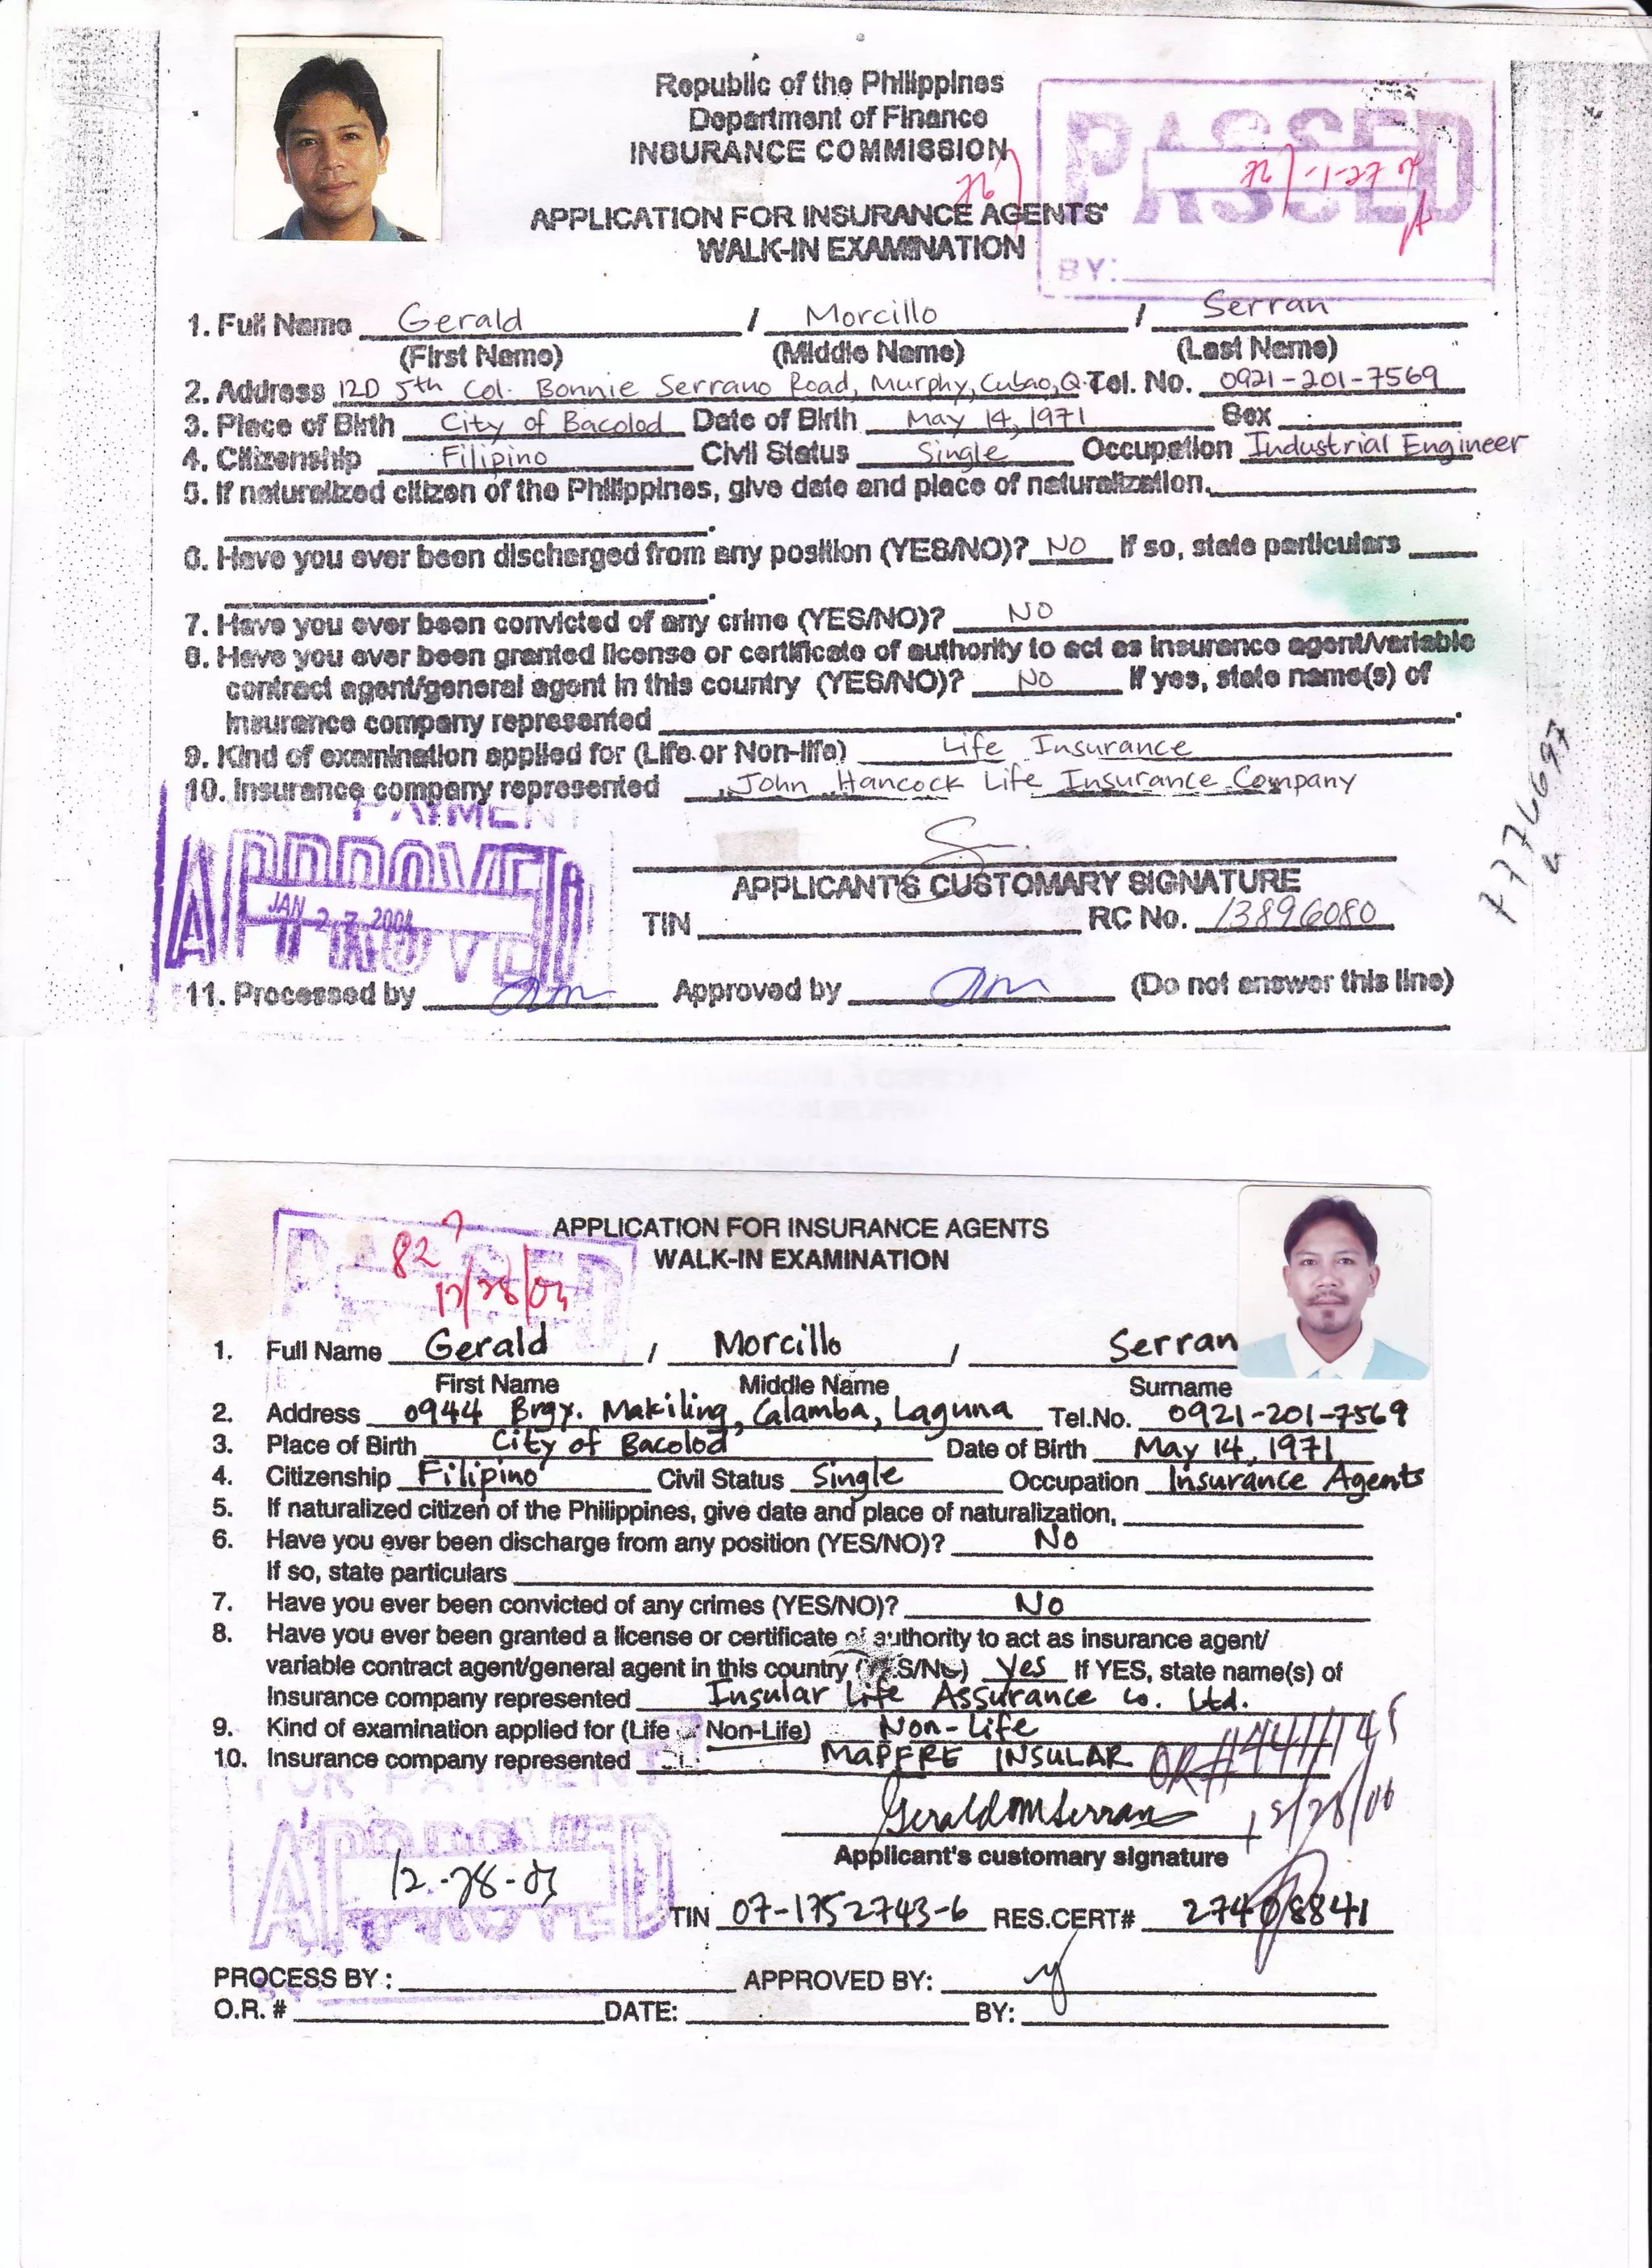 Republic of the Philippines
Department of Finance
INSURANCE COMMISSION
APPLICATION FOR INSURANCE AGENTS'
WALK-IN EXAMINATION
PASSED
BY:
1. Full Name Gerald / Morcillo / Serran
(First Name) (Middle Name) (Last Name)
2. Address 12D 5th Col. Bonnie Serrano Road, Murphy, Cubao, Q. Tel. No. 0921-201-7569
3. Place of Birth City of Bacolod Date of Birth May 14, 1971 Sex
4. Citizenship Filipino Civil Status Single Occupation Industrial Engineer
5. If naturalized citizen of the Philippines, give date and place of naturalization.
6. Have you ever been discharged from any position (YES/NO)? NO If so, state particulars
7. Have you ever been convicted of any crime (YES/NO)? NO
8. Have you ever been granted license or certificate of authority to act as insurance agent/variable
contract agent/general agent in this country (YES/NO)? NO If yes, state name(s) of
insurance company represented
9. Kind of examination applied for (Life or Non-life) Life Insurance
10. Insurance company represented John Hancock Life Insurance Company
PAYMENT
APPROVED
JAN 27 2004
7776697
APPLICANT'S CUSTOMARY SIGNATURE
TIN RC No. 13896080
11. Processed by Approved by (Do not answer this line)
APPLICATION FOR INSURANCE AGENTS
WALK-IN EXAMINATION
PASSED
82
12/28/05
1. Full Name Gerald / Morcillo / Serran
First Name Middle Name Surname
2. Address 0944 Brgy. Makiling, Calamba, Laguna Tel.No. 0921-201-7569
3. Place of Birth City of Bacolod Date of Birth May 14, 1971
4. Citizenship Filipino Civil Status Single Occupation Insurance Agents
5. If naturalized citizen of the Philippines, give date and place of naturalization,
6. Have you ever been discharge from any position (YES/NO)? No
If so, state particulars
7. Have you ever been convicted of any crimes (YES/NO)? No
8. Have you ever been granted a license or certificate of authority to act as insurance agent/
variable contract agent/general agent in this country (YES/NO) Yes If YES, state name(s) of
Insurance company represented Insular Life Assurance Co. Ltd.
9. Kind of examination applied for (Life Non-Life) Non-Life
10. Insurance company represented MAPFRE INSULAR
FOR PAYMENT
APPROVED
12-28-05
GeraldMSerran
Applicant's customary signature
TIN 07-1752743-6 RES.CERT# 27408841
PROCESS BY : APPROVED BY:
O.R. # DATE: BY: